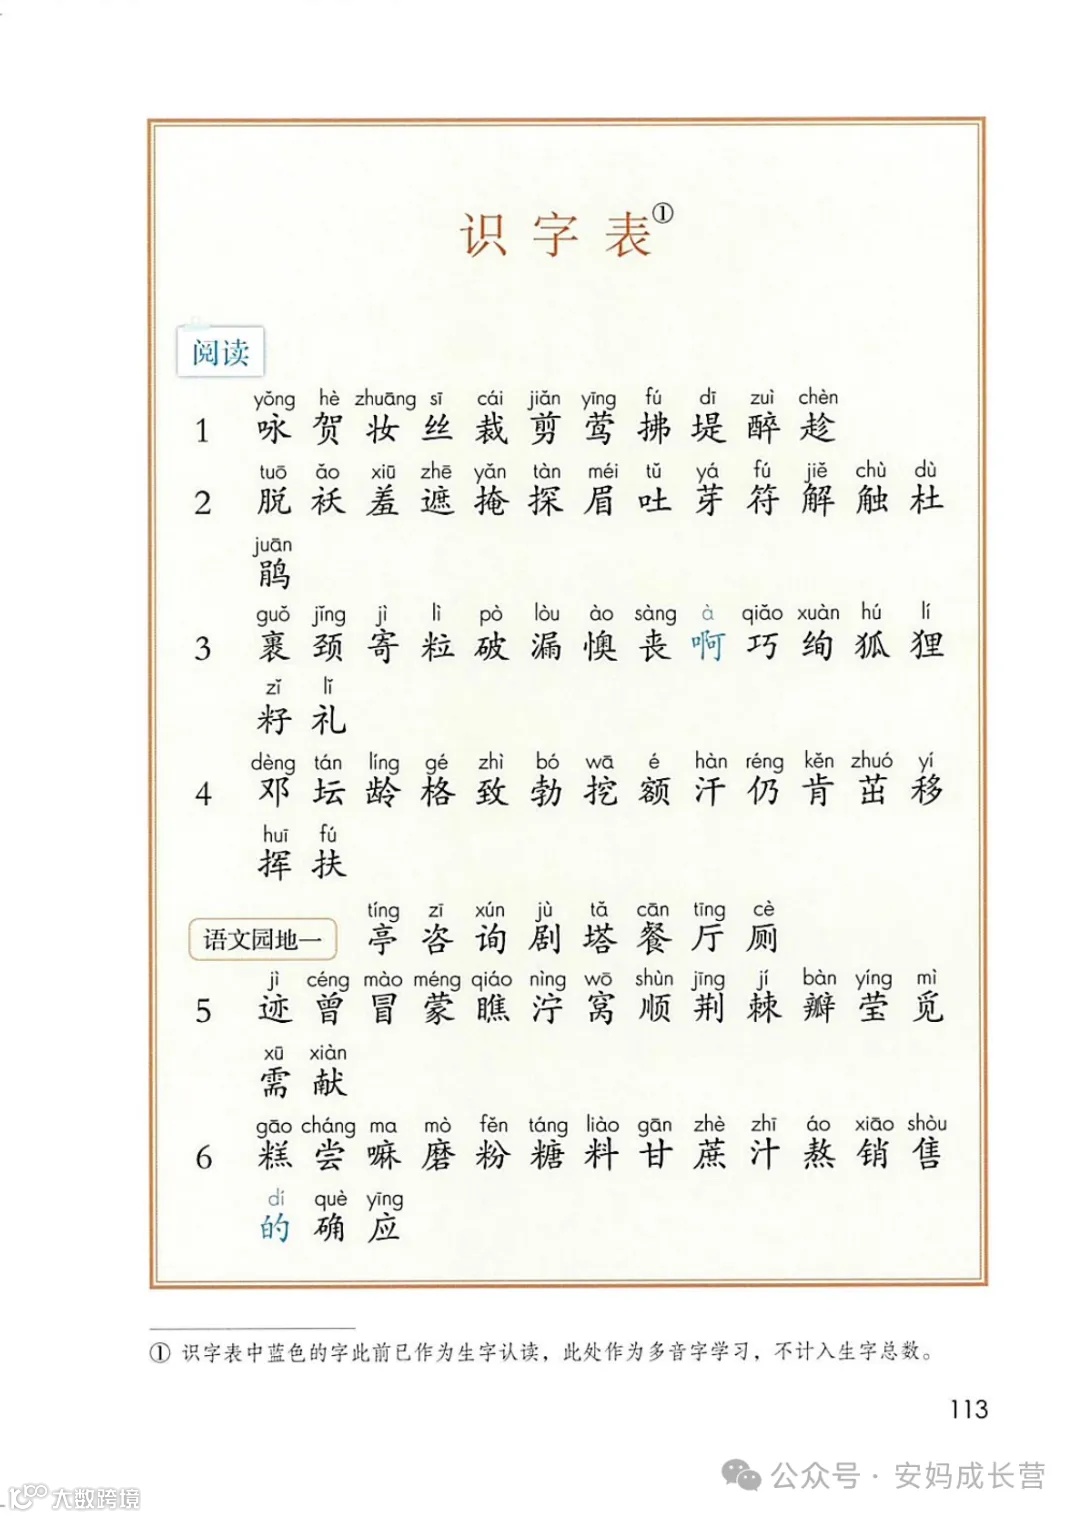 识字表①
阅读
yǒng hè zhuāng sī cái jiǎn yīng fú dī zuì chèn
1 咏 贺 妆 丝 裁 剪 莺 拂 堤 醉 趁
tuō ǎo xiū zhē yǎn tàn méi tǔ yá fú jiě chù dù
2 脱 袄 羞 遮 掩 探 眉 吐 芽 符 解 触 杜
juān
鹃
guǒ jǐng jì lì pò lòu ào sàng à qiǎo xuàn hú lí
3 裹 颈 寄 粒 破 漏 懊 丧 啊 巧 绚 狐 狸
zǐ lǐ
籽 礼
dèng tán líng gé zhì bó wā é hàn réng kěn zhuó yí
4 邓 坛 龄 格 致 勃 挖 额 汗 仍 肯 茁 移
huī fú
挥 扶
tíng zī xún jù tǎ cān tīng cè
语文园地一 亭 咨 询 剧 塔 餐 厅 厕
jì céng mào méng qiáo nìng wō shùn jīng jí bàn yíng mì
5 迹 曾 冒 蒙 瞧 泞 窝 顺 荆 棘 瓣 莹 觅
xū xiàn
需 献
gāo cháng ma mò fěn táng liào gān zhè zhī áo xiāo shòu
6 糕 尝 嘛 磨 粉 糖 料 甘 蔗 汁 熬 销 售
dí què yīng
的 确 应
① 识字表中蓝色的字此前已作为生字认读，此处作为多音字学习，不计入生字总数。
113
公众号 · 安妈成长营
大数跨境